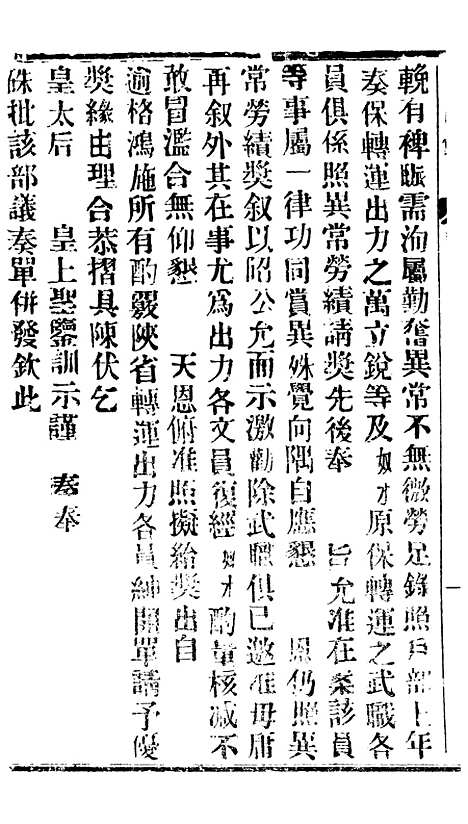 輓有裨賑需洵屬勤奮異常不無微勞足錄照戶部上年
奏保轉運出力之萬立銳等及奴才原保轉運之武職各
員俱係照異常勞績請獎先後奉　　旨允准在案該員
等事屬一律功同賞異殊覺向隅自應懇　　恩仍照異
常勞績獎叙以昭公允而示激勸除武職俱已邀准毋庸
再叙外其在事尤為出力各文員復經奴才酌量核減不
敢冒濫合無仰懇　　天恩俯准照擬給獎出自
逾格鴻施所有酌覈陝省轉運出力各員紳開單請予優
獎緣由理合恭摺具陳伏乞
皇太后　　皇上聖鑒訓示謹　奏奉
硃批該部議奏單併發欽此